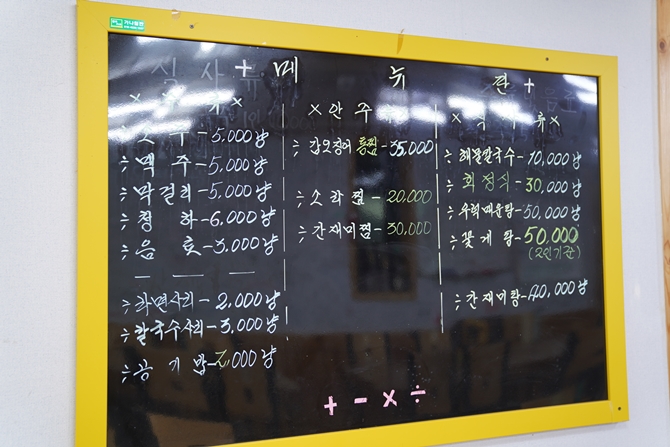 가나칠판
+ 메 뉴 판 +
× 주 류 ×
÷ 소 주 - 5,000냥
÷ 맥 주 - 5,000냥
÷ 막걸리 - 5,000냥
÷ 청 하 - 6,000냥
÷ 음 료 - 3,000냥
÷ 라면사리 - 2,000냥
÷ 칼국수사리 - 3,000냥
÷ 공 기 밥 - 1,000냥
× 안 주
÷ 갑오징어통찜 - 35,000
÷ 소라찜 - 20,000
÷ 간재미찜 - 30,000
× 식 사 류 ×
÷ 해물칼국수 - 10,000냥
÷ 회정식 - 30,000냥
÷ 우럭매운탕 - 50,000냥
÷ 꽃게탕 - 50,000냥
(2인기준)
÷ 간재미탕 - 40,000냥
+ - × ÷